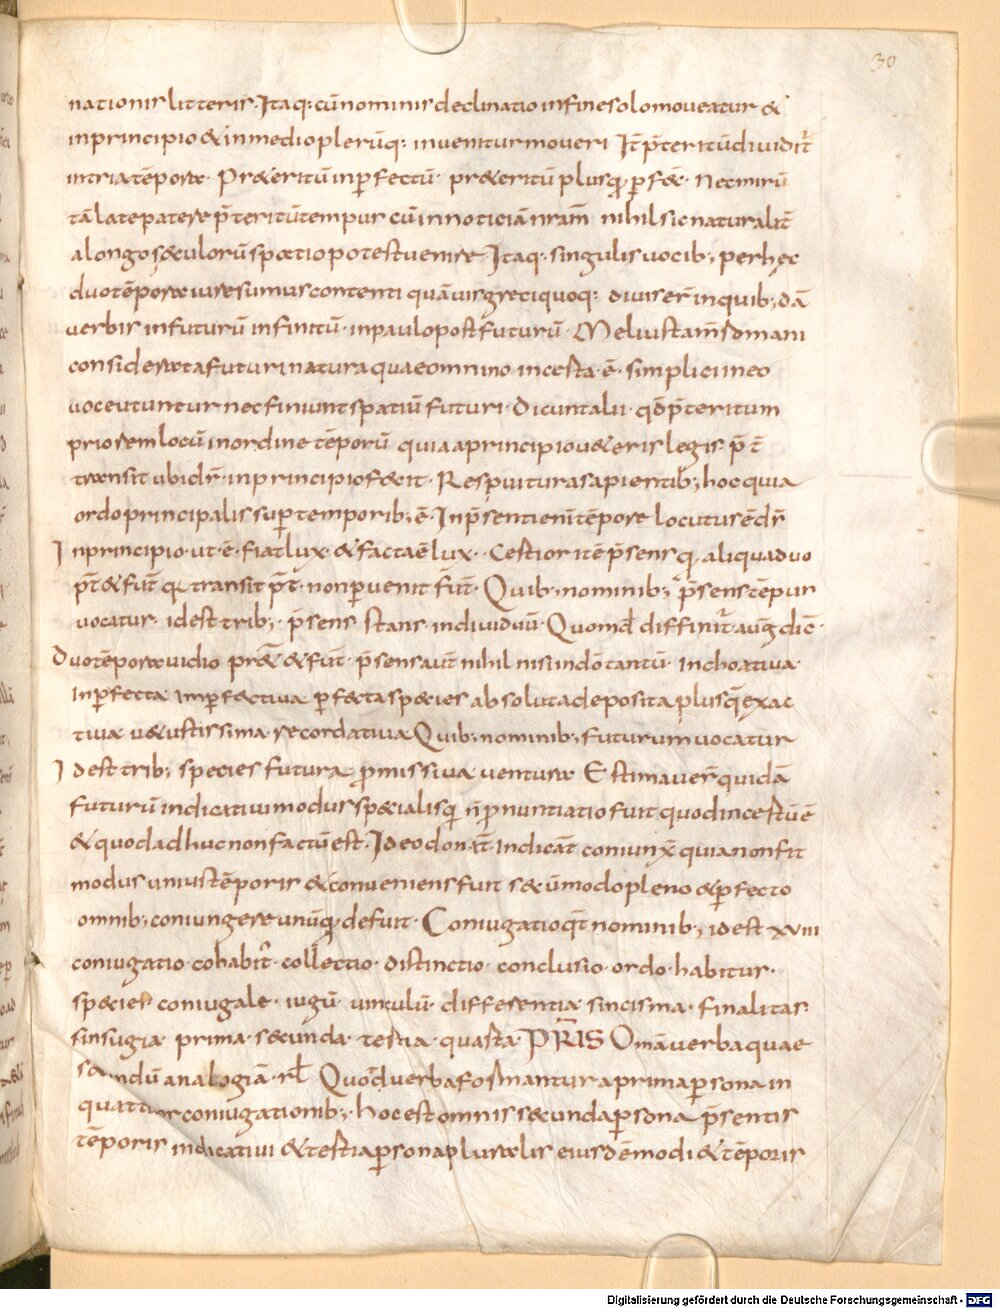 30
nationis litteris · Itaq: cū nominis declinatio in fine solo moueatur &
in principio & in medio plerūq: inuenitur moueri It p̄teritū diuidit̄
in tria tēpora · Pr&eritū inp̄fectū · pr&eritū plusq̄ p̄f&c · Nec mirū
tā late patere p̄teritū tempus cū in noticiā nr̄am nihil sic naturalit̄
a longo s&culorū spatio potest uenire · Itaq · singulis uocib; per hec
duo tēpora iure sumus contenti quāuis greci quoq: diuiser̄ in quib;dā
uerbis in futurū infinitū · in paulo post futurū · Melius tam̄ romani
considerata futuri natura quae omnino incerta · ē · simplici in eo
uoce utuntur nec finiunt spatiū futuri · Dicunt alii · qd̄ p̄teritum
priorem locū in ordine tēporū quia a principio u&eris legis · p̄t̄
transit ubi dr̄ · in principio f&cit · Respuitur a sapientib; hoc quia
ordo principalis sup̄ temporib; ē · In p̄senti eni tēpore locutus ē dr̄
In principio · ut · ē · fiat lux · & facta ē lux · Certior itē p̄sens q, aliqua duo
p̄t̄ & fut̄ q, transit p̄t̄ · non p̄uenit fut̄ · Quib; nominib; p̄sens tēpus
uocatur · id est trib; · p̄sens stans indiuiduū · Quomd̄ diffinit̄ aug dic̄ ·
Duo tēpora uidio pr&̄ & fut̄ · p̄sens aut̄ nihil nisi undō tantū · Inchoatiua
inp̄fecta imp̄fectiua p̄fecta sp&cies absoluta deposita plusq̄ exac
tiua u&ustissima · recordatiua Quib; nominib; futurum uocatur
Id est trib; species futura p̄missiua uentura Estimauer̄ quidā
futurū indicatiui modus sp&cialis q, n̄ p̄nuntiatio fuit quod incertū ē
& quod adhuc non factū est · Ideo donat̄ · indicāt coniunx̄ quia non fit
modus unius tēporis & conueniens fuit s&cūmodo pleno & p̄fecto
omnib; coniungere unūq, defuit · Coniugatio qt̄ nominib; id est xviii
coniugatio · cohabit̄ · collectio · distinctio · conclusio · ordo · habitus ·
sp&cies coniugale · iugū · uinculū · differentia sincisma · finalitas ·
sinsugia prima · s&cunda · tertia · quarta PR̄IS Omā uerba quae
s&cundū analogiā · rl̄ Quod̄ uerba formantur a prima p̄sona in
quattuor coniugationib; · hoc est omnis s&cunda p̄sona p̄sentis
tēporis indicatiui & tertia p̄sona pluralis eiusdē modi & tēporis
Digitalisierung gefördert durch die Deutsche Forschungsgemeinschaft - DFG